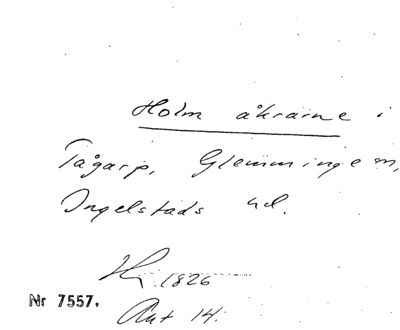 Holm åkrarne i
Tågarp, Glemmingem,
Ingelstads hd.
1826
Nr 7557.
Akt 14.